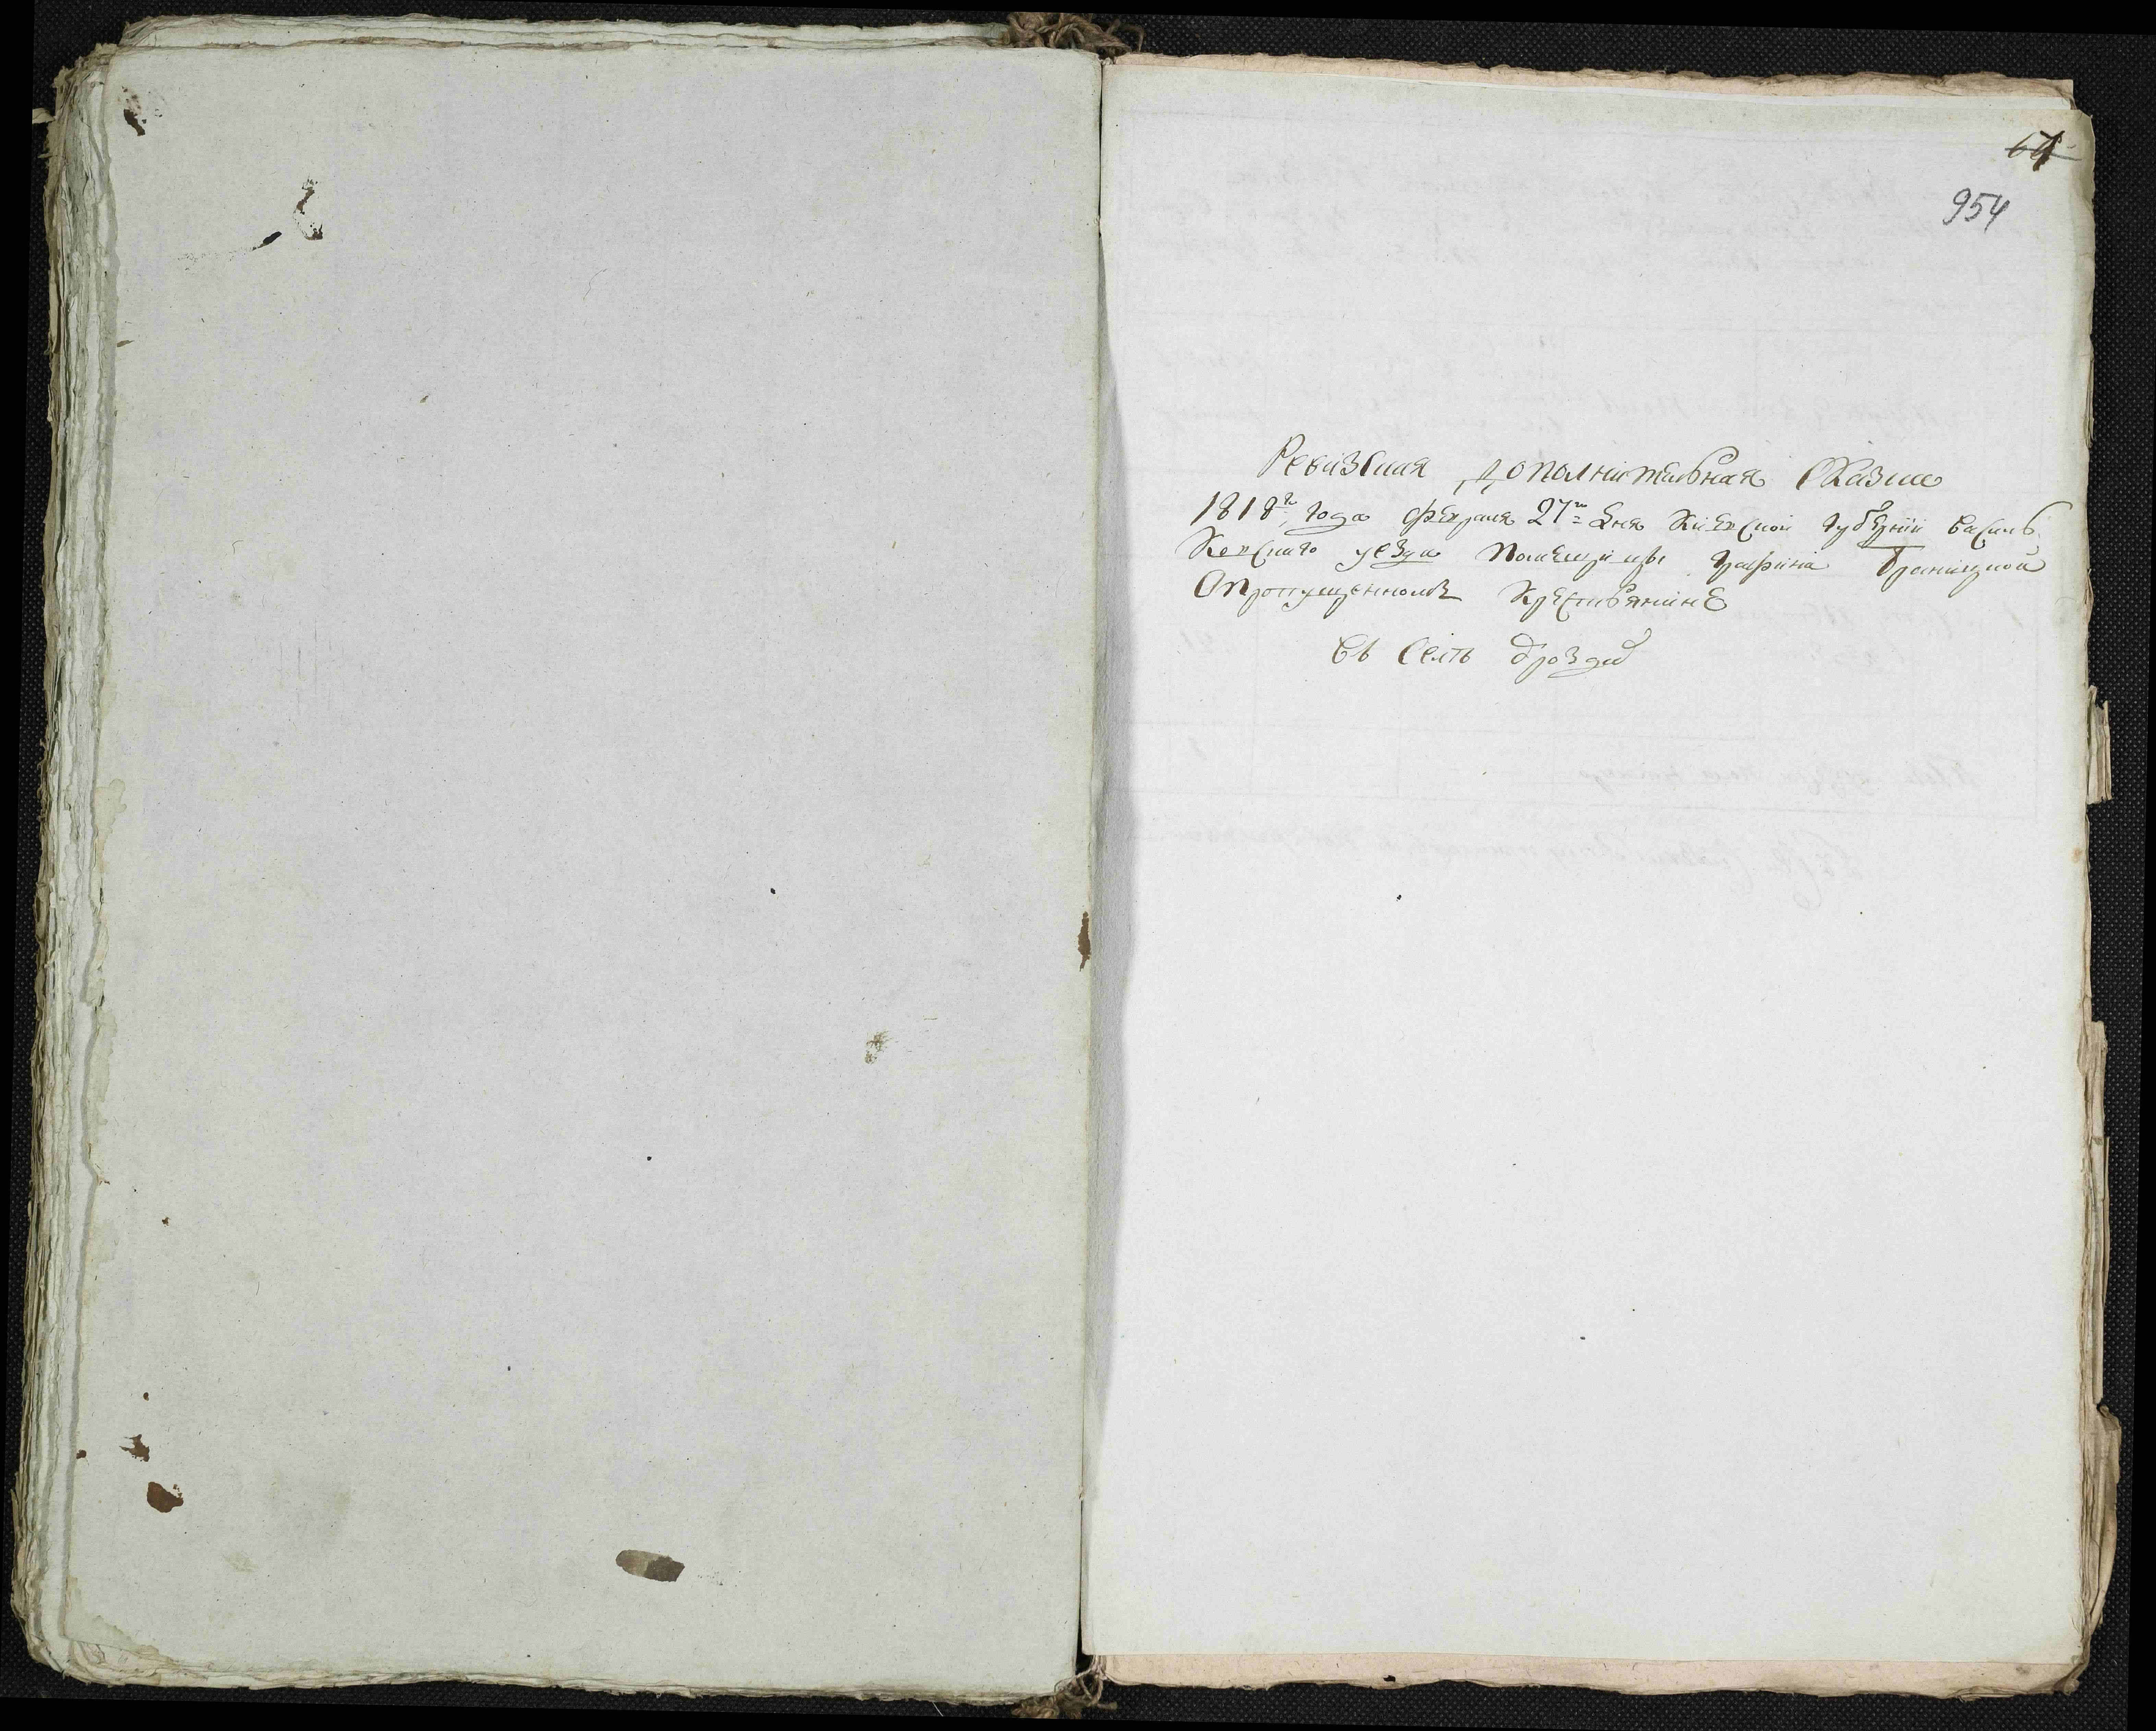 954
Ревизская дополнительная Сказка
1818го года февраля 27го дня Киевской губернии василь
Ковского уезда помещицы графини Браницкой
О пропущенномъ Крестьянине
Въ Селѣ Дрозда